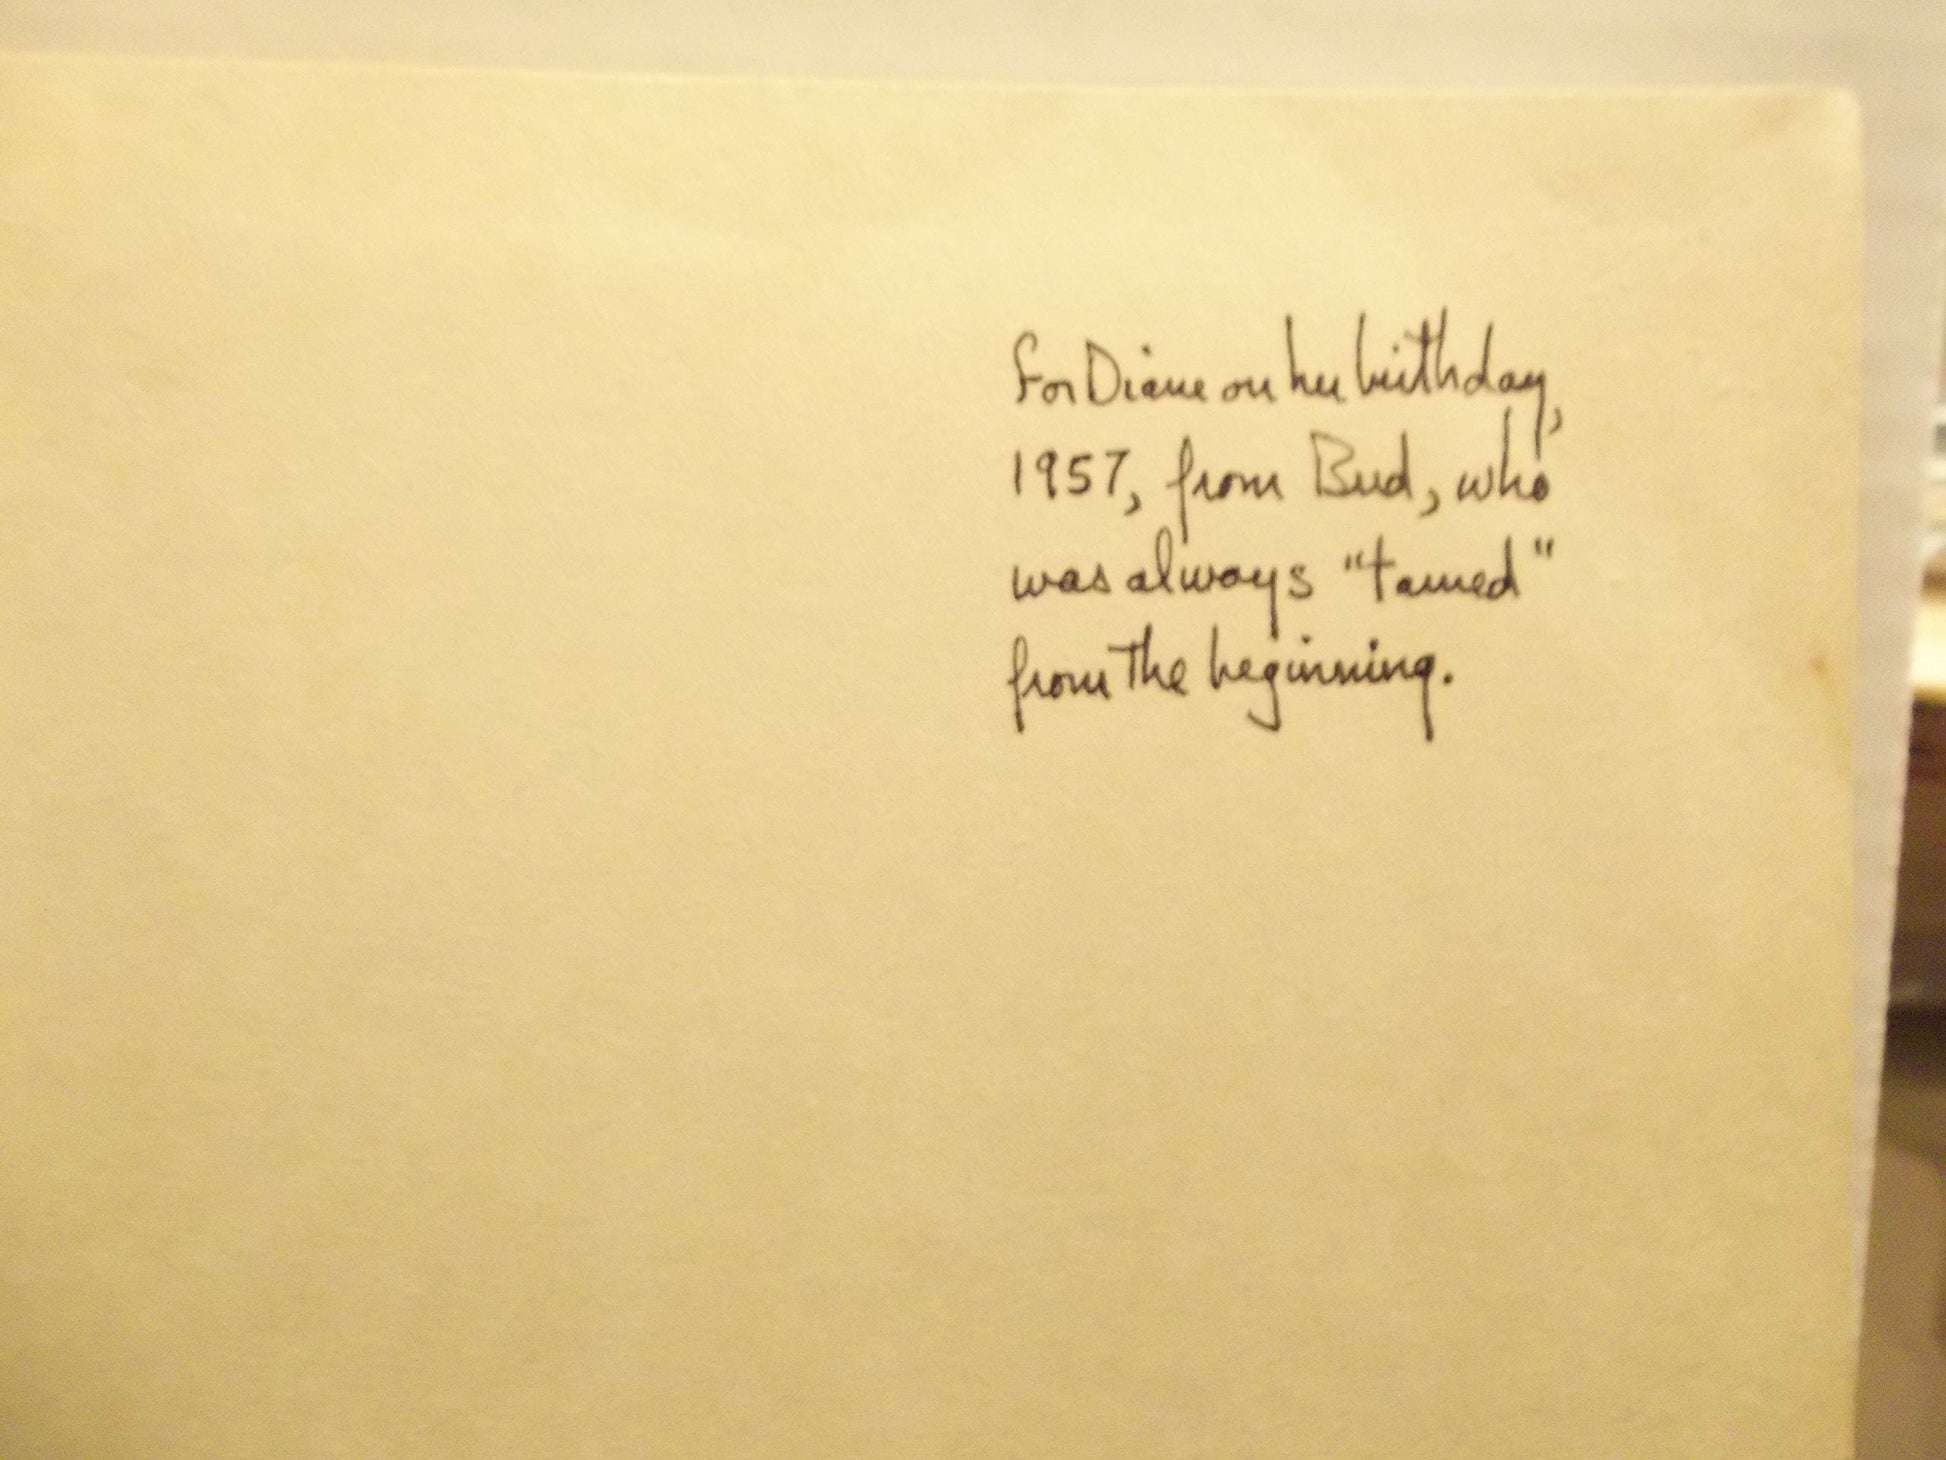 For Diane on her birthday,
1957, from Bud, who
was always "tamed"
from the beginning.